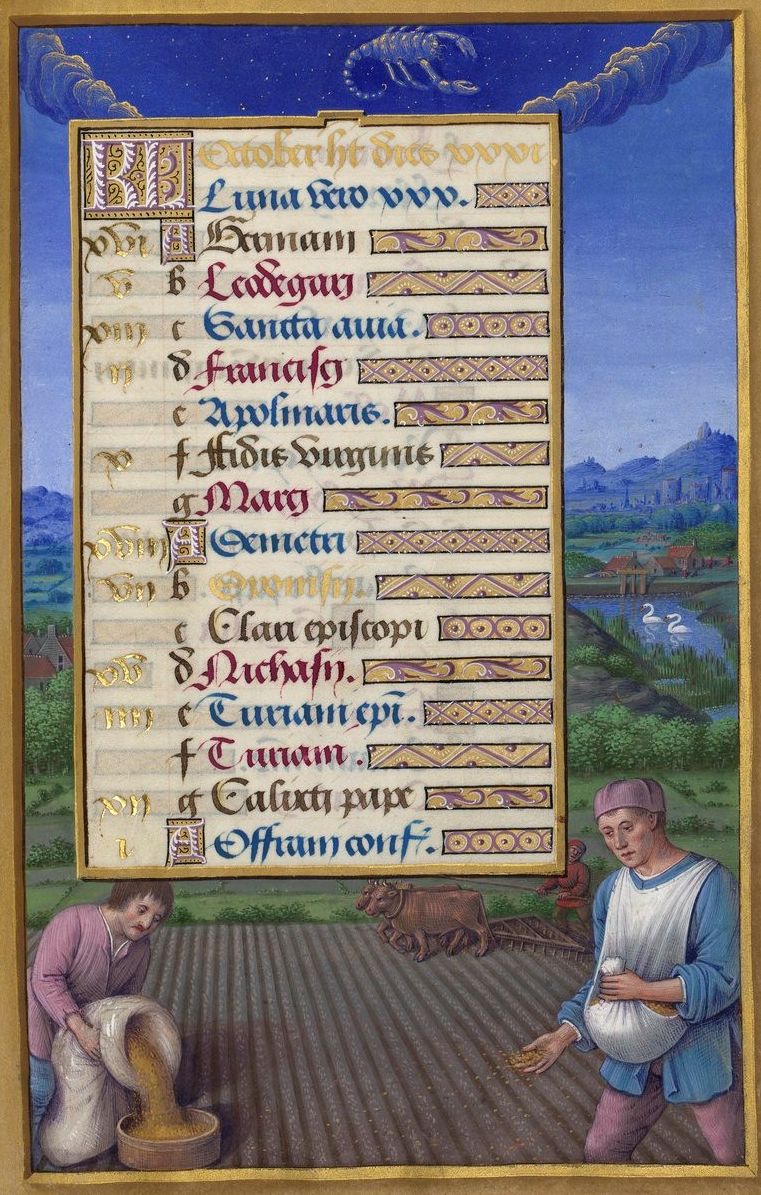 KL October ht dies xxxi
Luna vero xxx.
xvi A Germani
v b Leodegarij
xiii c Sancta auia.
ii d Francisci
e Apolinaris.
x f Fidis virginis
g Marci
xviii A Demetri
vii b Dionisij.
c Clari episcopi
xv d Nichasij.
iiii e Turiani epi.
f Turiani.
xii g Calixti pape
i A Offrani conf.